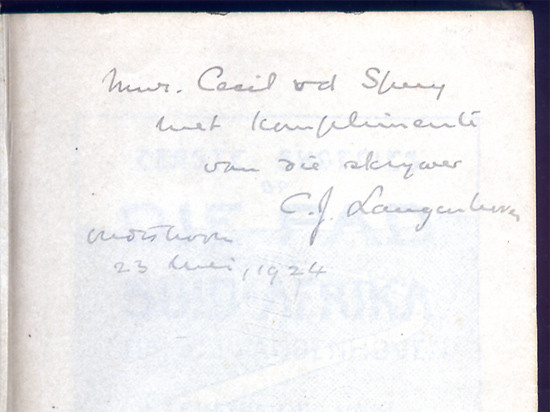 Mnr. Cecil vd Spuy
met komplimente
van die skrywer
C.J. Langenhoven
Oudtshoorn
23 Mei, 1924